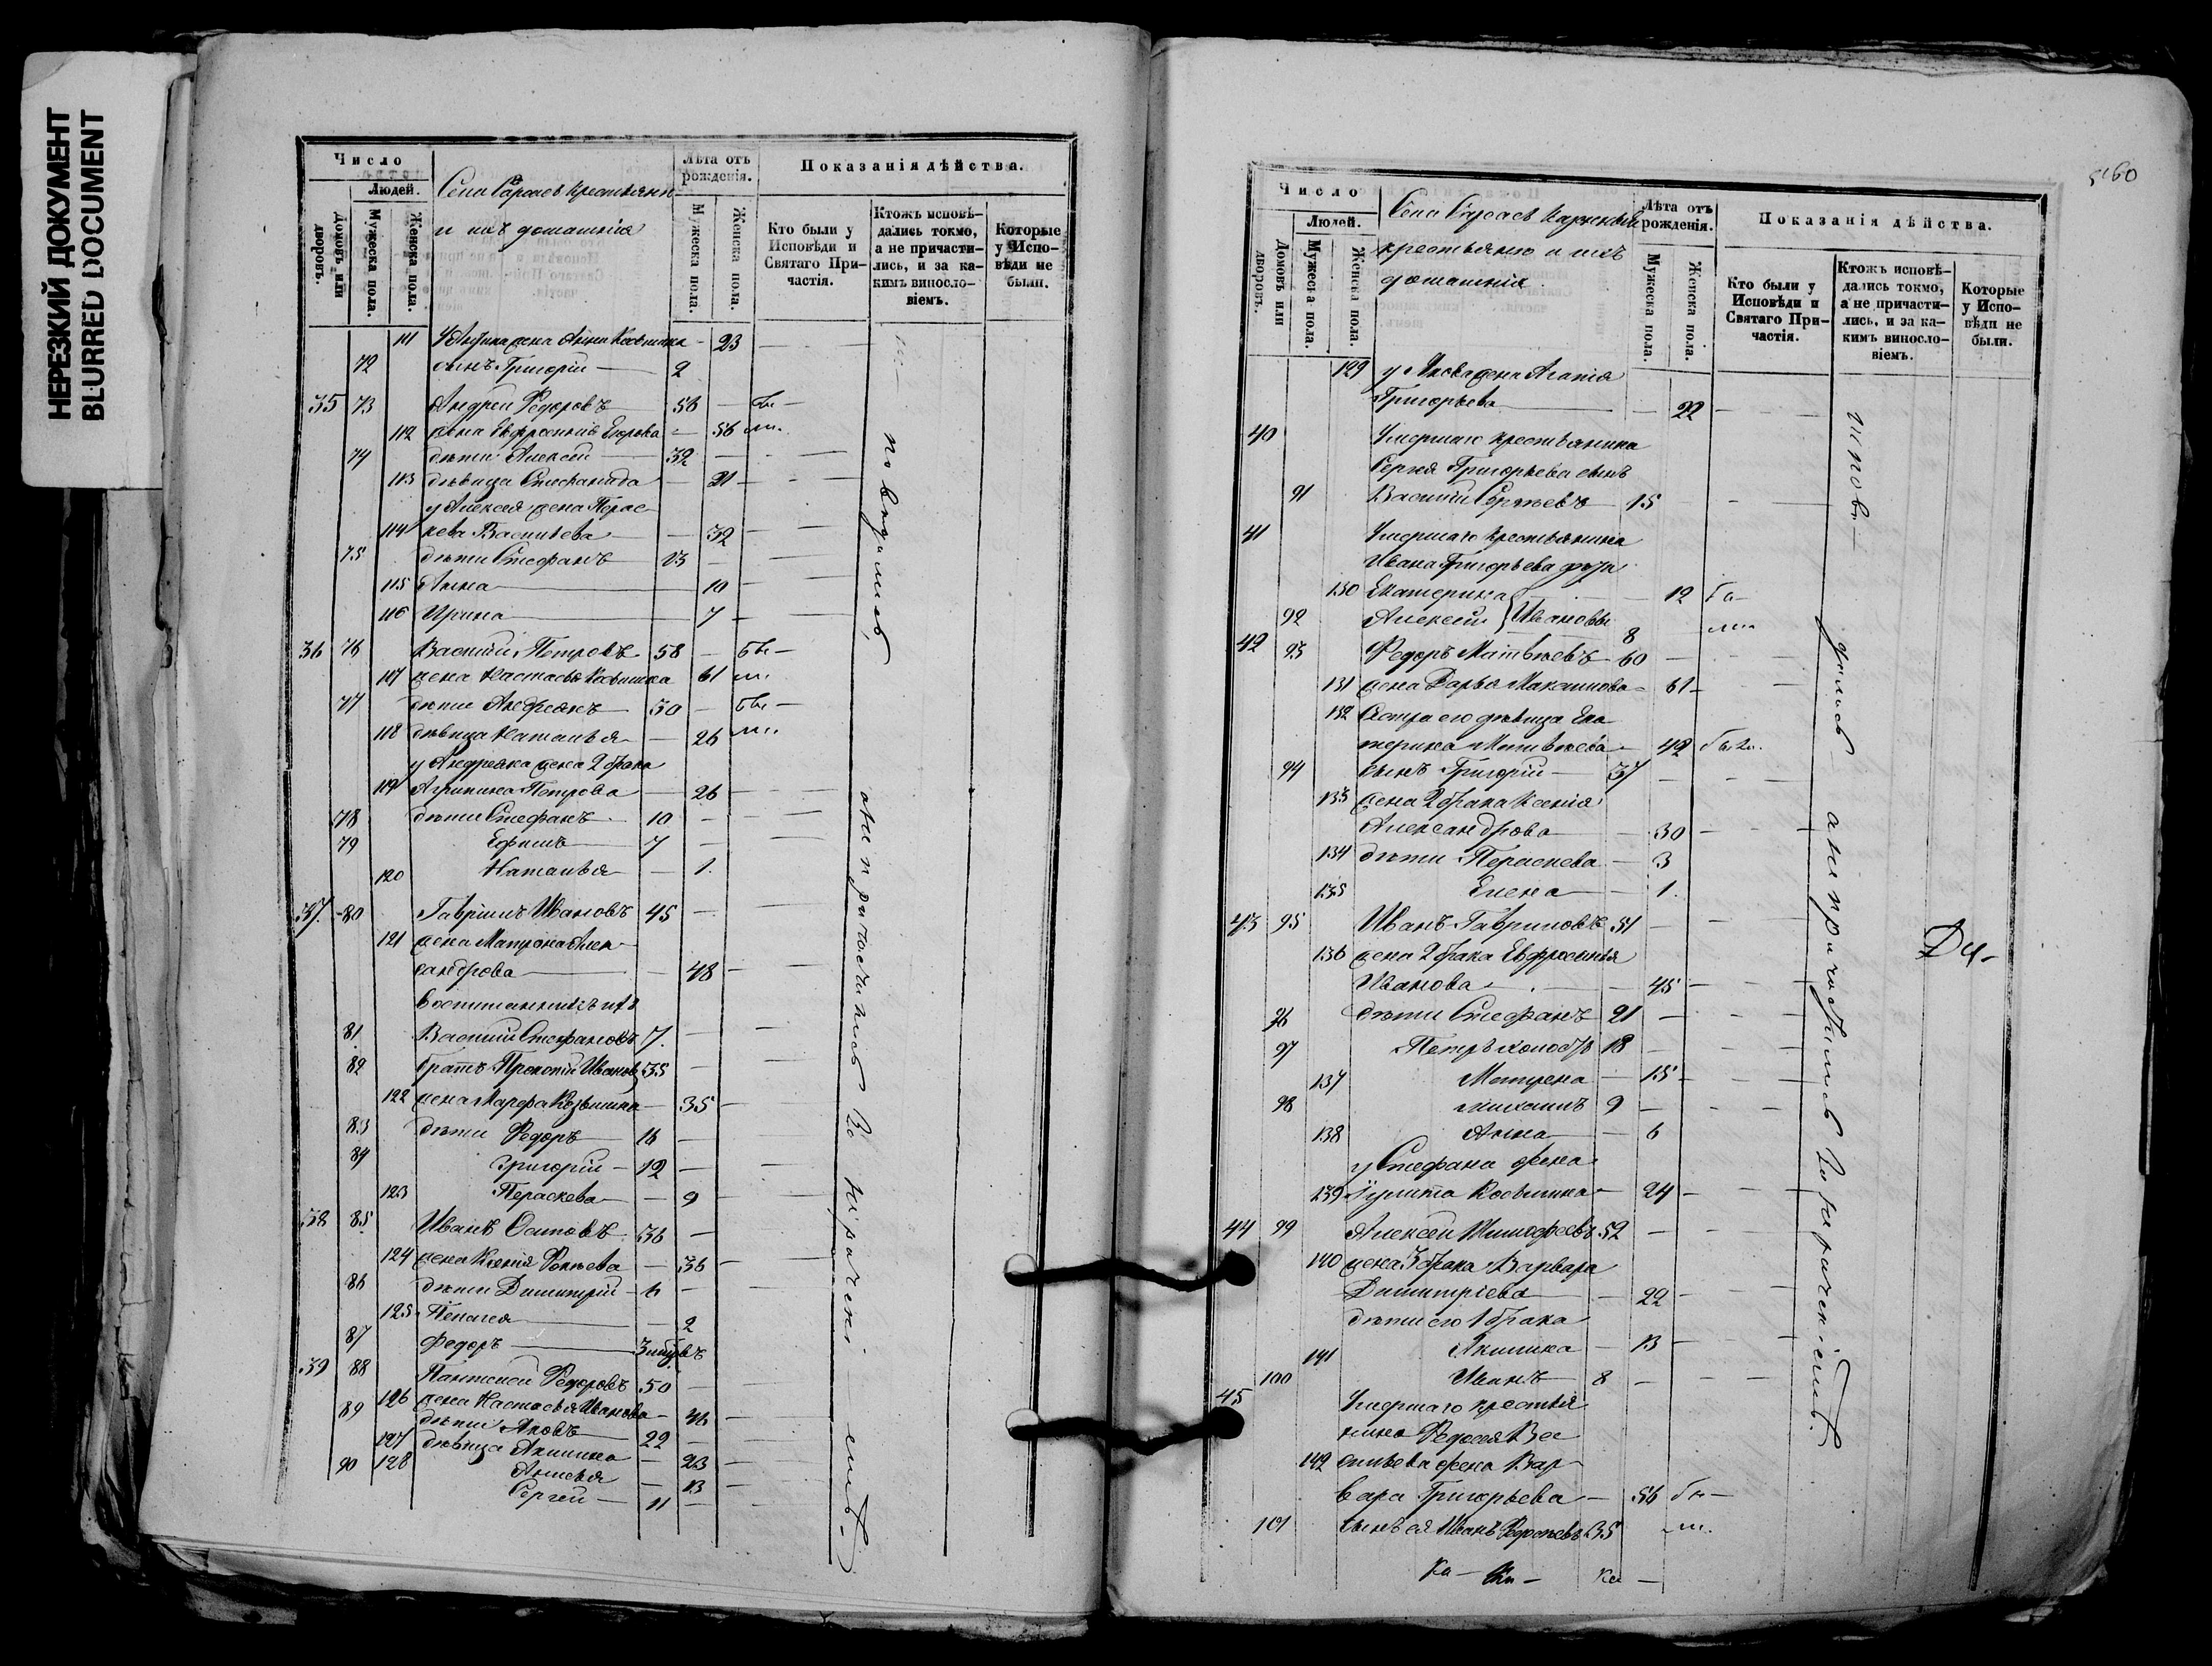 НЕРЕЗКИЙ ДОКУМЕНТ
BLURRED DOCUMENT
Число
Людей.
домовъ или дворовъ.
Мужеска пола.
Женска пола.
крестьяне
и ихъ домашнія
Лѣта отъ рожденія.
Мужеска пола.
Женска пола.
Показанія дѣйства.
Кто были у Исповѣди и Святаго Причастія.
Ктожъ исповѣдались токмо, а не причастились, и за какимъ винословіемъ.
Которые у Исповѣди не были.
111 жена Анна Косьмина - 23
72 сынъ Григорій 2
35 73 Андрей Ѳедоровъ 56 - бы-
112 жена Евфросинія Егорова - 56 ли.
74 дѣти Алексей 32
113 дѣвица Стефанида - 21
у Алексея жена Парас
114 кева Васильева - 32
75 дѣти Стефанъ 13
115 Анна 10
116 Ирина 7
36 76 Василій Петровъ 58 - бы-
117 жена Настасья Косьмина 61 ли.
77 дѣти Андреянъ 30 - бы-
118 дѣвица Наталья - 26 ли.
у Андреяна жена 2 брака
119 Агрипина Петрова - 26
78 дѣти Стефанъ 10
79 Ефимъ 7
120 Наталья - 1.
37. 80 Гавріилъ Ивановъ 45
121 жена Матрона Алек
сандрова - 48
воспитанникъ ихъ
81 Василий Стефановъ 7.
82 братъ Прокопій Ивановъ 35
122 жена Марфа Козьмина - 35
83 дѣти Ѳедоръ 16
84 Григорій 12
123 Параскева - 9
38 85 Иванъ Осиповъ 36
124 жена Ксенія Фокеева - 36
86 дѣти Димитрій 6
125 Пелагея - 2
87 Федоръ
39 88 Пантелей Ѳедоровъ 50
126 жена Настасья Иванова - 46
89 дѣти Яковъ 22
127 дѣвица Акилина - 23
128 Анисья - 13
90 Сергей 11
исповѣдались, а не причастились
5160
Число
Людей.
Домовъ или дворовъ.
Мужеска пола.
Женска пола.
крестьяне и ихъ
домашнія
Лѣта отъ рожденія.
Мужеска пола.
Женска пола.
Показанія дѣйства.
Кто были у Исповѣди и Святаго Причастія.
Ктожъ исповѣдались токмо, а не причастились, и за какимъ винословіемъ.
Которые у Исповѣди не были.
129 у Якова жена Агапія
Григорьева - 22
40 Умершаго крестьянина
Сергея Григорьева сынъ
91 Василий Сергеевъ 15
41 Умершаго крестьянина
Ивана Григорьева дѣти
130 Екатерина - 12 бы-
92 Алексей } Ивановы 8 ли.
42 93 Ѳедоръ Матвѣевъ 60
131 жена Дарья Максимова - 61
132 Сестра его дѣвица Ека
терина Матвѣева - 42 были.
94 сынъ Григорій 37
133 жена 2 брака Ксенія
Александрова - 30
134 дѣти Параскева - 3
135 Елена - 1.
43 95 Иванъ Гавриловъ 51
136 жена 2 брака Евфросинья
Иванова - 45
96 дѣти Стефанъ 21
97 Петръ 18
137 Матрена - 15
98 Михаилъ 9
138 Анна - 6
у Стефана жена
139 Улита Косьмина - 24
44 99 Алексей Тимофеевъ 52
140 жена 3 брака Варвара
Димитріева - 22
дѣти его 1 брака
141 Акилина - 13
100 Иванъ 8
45 Умершаго крестья
нина Ѳедосея Ва
142 сильева жена Вар
вара Григорьева - 56 бы-
101 сынъ ея Иванъ 35 ли.
исповѣдались а не причастились